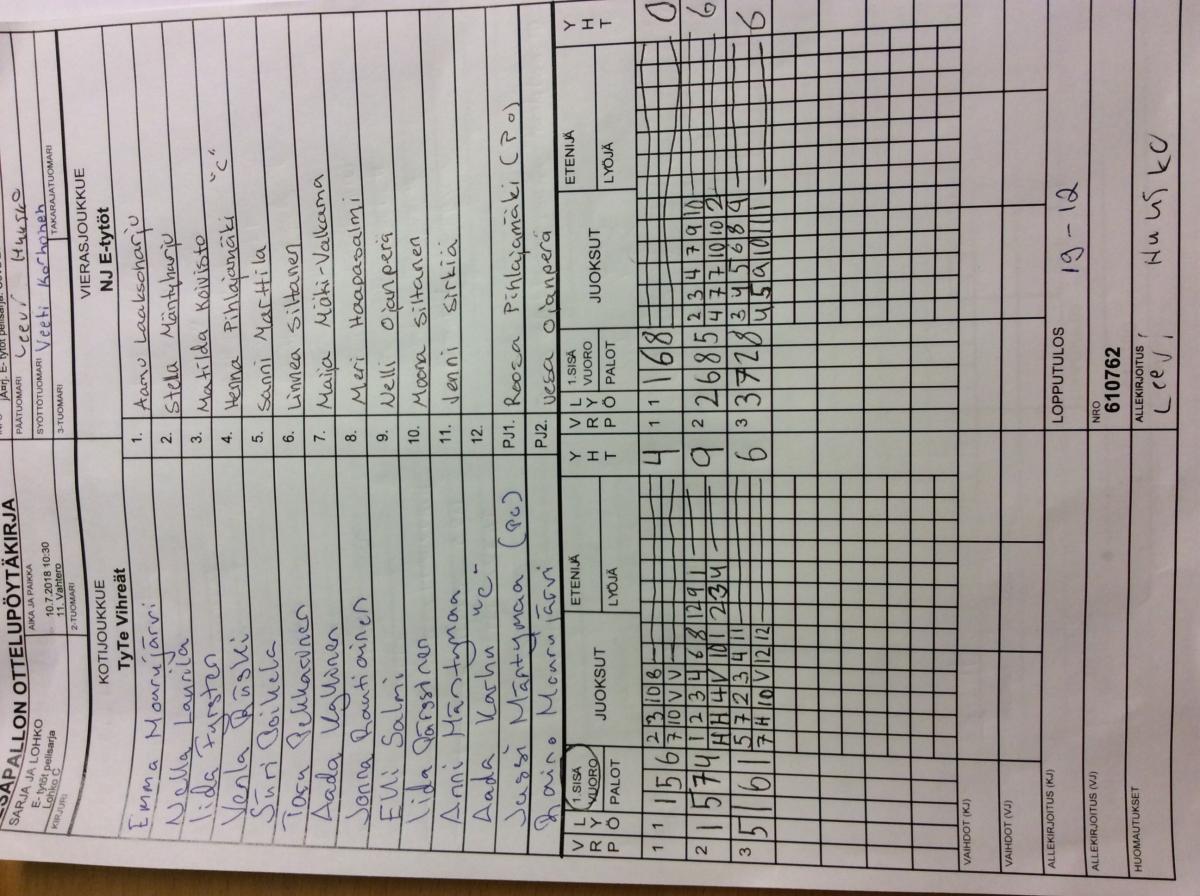 SAPALLON OTTELUPÖYTÄKIRJA
SARJA JA LOHKO
E- tytöt pelisarja
Lohko C
AIKA JA PAIKKA
10.7.2018 10:30
11. Vahtero
PÄÄTUOMARI
Leevi Nuusko
KIRJURI
2-TUOMARI
SYÖTTÖTUOMARI Veeti Korhonen
3-TUOMARI
TAKARAJATUOMARI
KOTIJOUKKUE
TyTe Vihreät
VIERASJOUKKUE
NJ E-tytöt
Emma Mourujärvi 1. Aamu Laaksoharju
Nella Laurila 2. Stella Mäntyharju
Iida 3. Matilda Koivisto
Venla 4. Henna Pihlajamäki "C"
Siiri Poikela 5. Sanni Marttila
Pekkarinen 6. Linnea Siltanen
Aada Kyllönen 7. Maija Mäki-Valkama
Jonna Rautiainen 8. Meri Haapasalmi
Elli Salmi 9. Nelli Ojanperä
Iida Pärssinen 10. Moona Siltanen
Anni Mäntymaa 11. Jenni Sirkiä
Aada Karhu "C" 12.
Jussi Mäntymaa (PO) PJ1. Roosa Pihlajamäki (PO)
Raino Mourujärvi PJ2. Vesa Ojanperä
V R P L Y Ö 1.SISÄ VUORO PALOT JUOKSUT ETENIJÄ LYÖJÄ Y H T V R P L Y Ö 1.SISÄ VUORO PALOT JUOKSUT ETENIJÄ LYÖJÄ Y H T
1 1 1 5 6 2 3 10 8 4 1 1 1 6 8 0
7 10 V V
2 1 5 7 4 1 2 3 4 6 8 12 9 1 9 2 2 6 8 5 2 3 4 7 9 11 6
H H 4 V 10 1 2 3 4 4 7 7 10 10 2
3 5 1 6 0 1 5 7 2 3 4 11 6 3 3 7 2 8 3 4 5 6 8 4 6
7 H 10 V 12 12 4 5 9 10 11 11
VAIHDOT (KJ)
VAIHDOT (VJ)
ALLEKIRJOITUS (KJ)
LOPPUTULOS
19-12
ALLEKIRJOITUS (VJ)
NRO
610762
HUOMAUTUKSET
ALLEKIRJOITUS
Leevi Nuusko